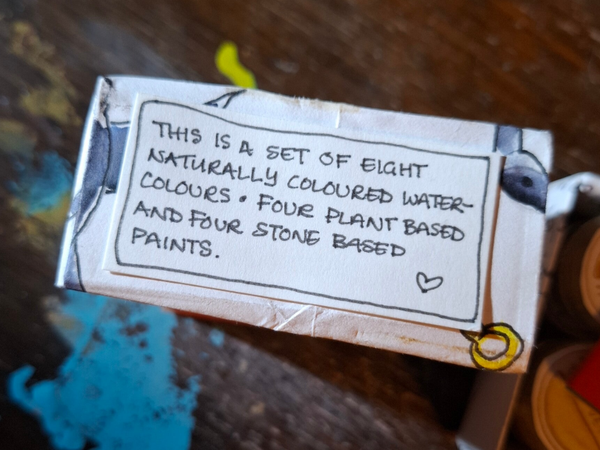 THIS IS A SET OF EIGHT
NATURALLY COLOURED WATER-
COLOURS • FOUR PLANT BASED
AND FOUR STONE BASED
PAINTS.